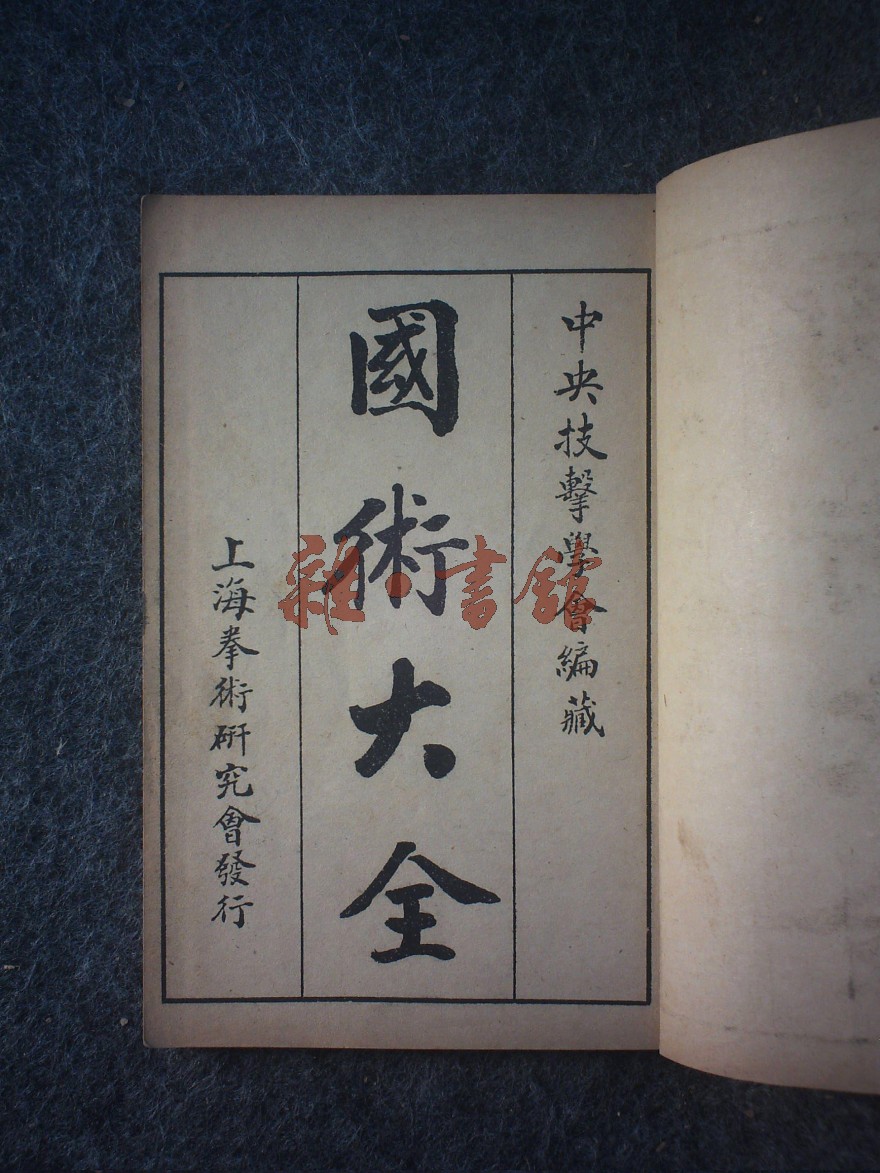 中央技擊學會編藏
國術大全
上海拳術研究會發行
雜·書館